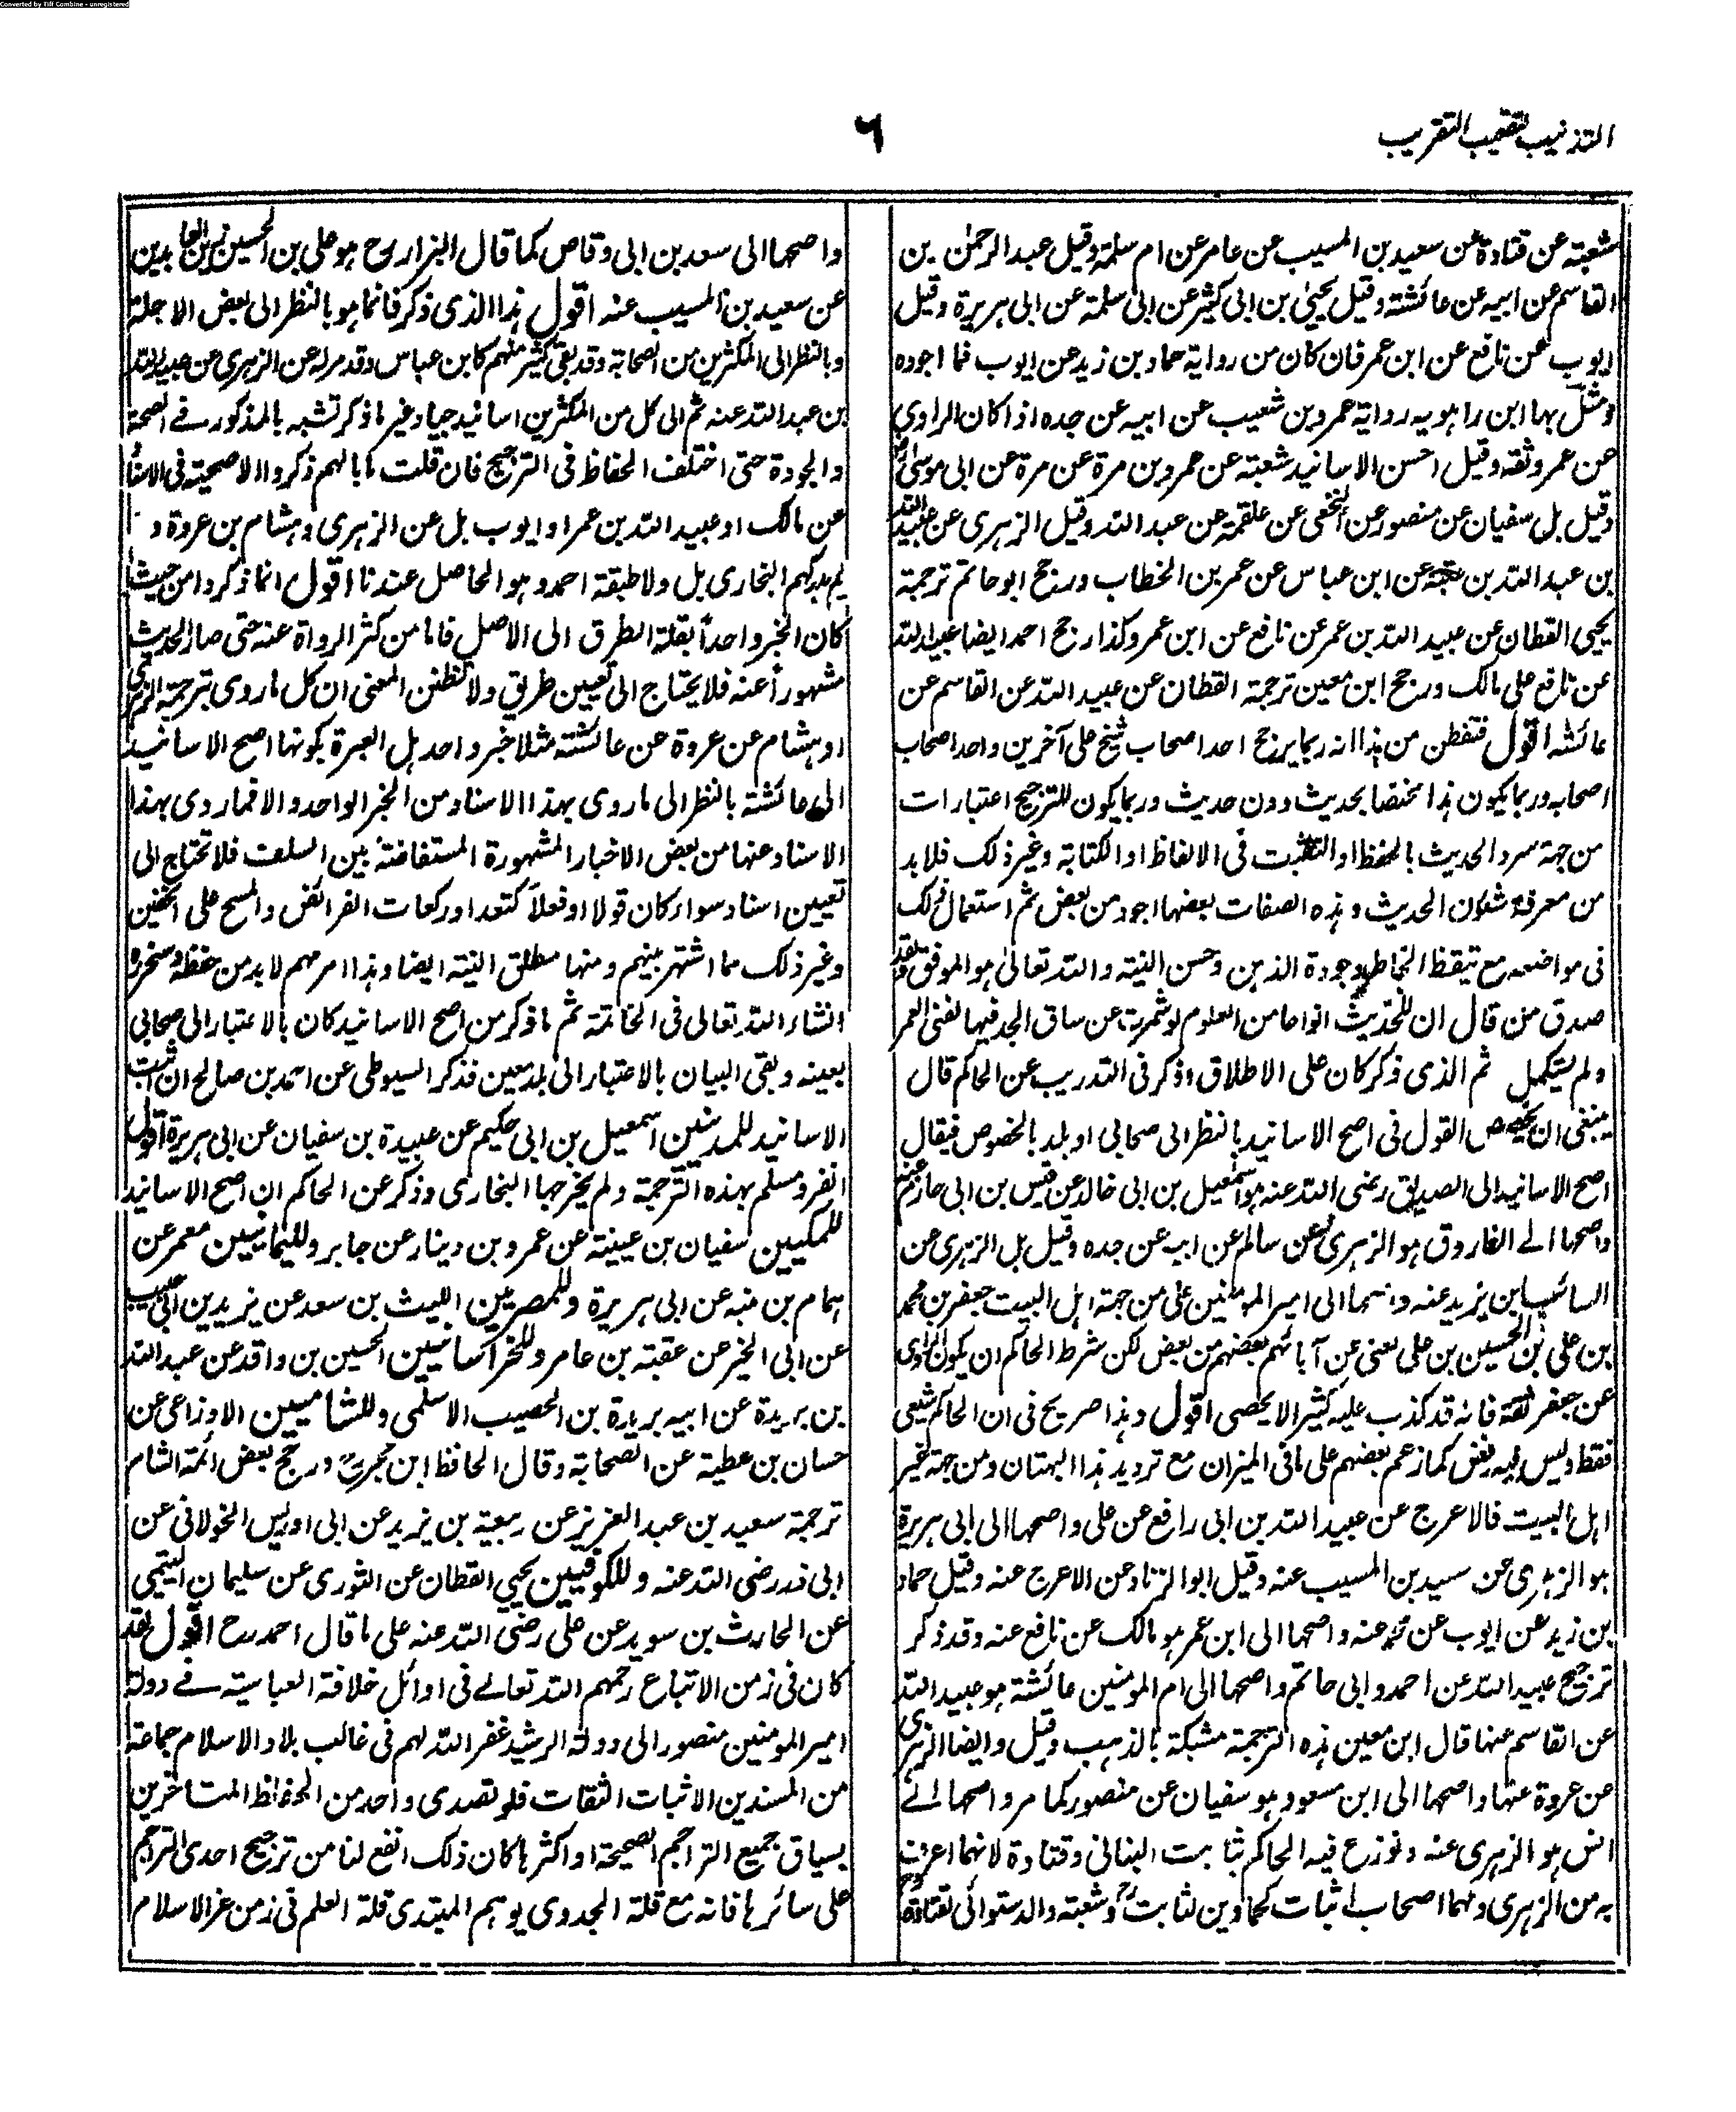 Converted by Tiff Combine - unregistered
التذنيب لتعقيب التقريب
٦
شعبة عن قتادة عن سعيد بن المسيب عن عامر عن ام سلمة وقيل عبد الرحمن بن
القاسم عن ابيه عن عائشة وقيل يحيى بن ابى كثير عن ابى سلمة عن ابى هريرة وقيل
ايوب عن نافع عن ابن عمر فان كان من رواية حماد بن زيد عن ايوب فما اجوده
ومثل بها ابن راهويه رواية عمرو بن شعيب عن ابيه عن جده اذا كان الراوي
عن عمر وثقة وقيل احسن الاسانيد شعبة عن عمرو بن مرة عن مرة عن ابى موسى
وقيل بل سفيان عن منصور عن النخعى عن علقمة عن عبد الله وقيل الزهرى عن عبيد الله
بن عبد الله بن عتبة عن ابن عباس عن عمر بن الخطاب ورجح ابو حاتم ترجمة
يحيى القطان عن عبيد الله بن عمر عن نافع عن ابن عمر وكذا رجح احمد ايضا عبيد الله
عن نافع على مالك ورجح ابن معين ترجمة القطان عن عبيد الله عن القاسم عن
عائشه اقول فتفطن من هذا انه ربما يرجح احد اصحاب شيخ على آخرين واحد اصحاب
اصحابه وربما يكون هذا مختصا بحديث دون حديث وربما يكون للترجيح اعتبارات
من جهة سرد الحديث بالحفظ او التثبت فى الالفاظ او الكتابة وغير ذلك فلا بد
من معرفة شئون الحديث وهذه الصفات بعضها اجود من بعض ثم استعمال ذلك
فى مواضعه مع تيقظ الخاطر وجودة الذهن وحسن النية والله تعالى هو الموفق ولقد
صدق من قال ان للحديث انواعا من العلوم لو شمرت عن ساق الجد فيها لفنى العمر
ولم يستكمل ثم الذى ذكر كان على الاطلاق وذكر فى التدريب عن الحاكم قال
ينبغى ان يخصص القول فى اصح الاسانيد بالنظر الى صحابى او بلد بالخصوص فيقال
اصح الاسانيد الى الصديق رضى الله عنه هو اسمعيل بن ابى خالد عن قيس بن ابى حازم عنه
واصحها الے الفاروق هو الزهرى عن سالم عن ابيه عن جده وقيل بل الزهرى عن
السائب ابن يزيد عنه واصحها الى امير المومنين على من جهة اهل البيت جعفر بن محمد
بن على بن الحسين بن على يعنى عن آبائهم بعضهم من بعض لكن شرط الحاكم ان يكون الراوى
عن جعفر ثقة فانه قد كذب عليه كثير الا يحصى اقول وهذا صريح فى ان الحاكم شيعى
فقط وليس فيه رفض كما زعم بعضهم على ما فى الميزان مع ترديد هذا البهتان ومن جهة غير
اهل البيت فالاعرج عن عبيد الله بن ابى رافع عن على واصحها الى ابى هريرة
هو الزهرى عن سعيد بن المسيب عنه وقيل ابو الزناد عن الاعرج عنه وقيل حماد
بن زيد عن ايوب عن محمد عنه واصحها الى ابن عمر هو مالك عن نافع عنه وقد ذكر
ترجيح عبيد الله عن احمد وابى حاتم واصحها الى ام المومنين عائشة هو عبيد الله
عن القاسم عنها قال ابن معين هذه الترجمة مشبكة بالذهب وقيل وايضا الزهرى
عن عروة عنها واصحها الى ابن مسعود هو سفيان عن منصور كما مر واصحها الے
انس هو الزهرى عنه ونوزع فيه الحاكم ثابت البنانى وقتادة لانهما اعرف
به من الزهرى ولهما اصحاب اثبات كحمادين لثابت وشعبة والدستوائى لقتادة
واصحها الى سعد بن ابى وقاص كما قال البزار رح هو على بن الحسين زين العابدين
عن سعيد بن المسيب عنه اقول هذا الذى ذكر فانما هو بالنظر الى بعض الاجلة
وبالنظر الى المكثرين من الصحابة وقد بقى كثير منهم كابن عباس وقد مر له عن الزهرى عن عبيد الله
بن عبد الله عنه ثم الى كل من المكثرين اسانيد جياد غير ما ذكر تشبه بالمذكور فے الصحة
والجودة حتى اختلف الحفاظ فى الترجيح فان قلت ما بالهم ذكروا الاصحية فى الاسناد
عن مالك او عبيد الله بن عمر او ايوب بل عن الزهرى وهشام بن عروة و
لم يدركهم البخارى بل ولا طبقة احمد وهو الحاصل عندنا اقول انما ذكروا من حيث
كان الخبر واحداً بقلة الطرق الى الاصل فاما من كثر الرواة عنه حتى صار الحديث
مشهوراً عنه فلا يحتاج الى تعيين طريق ولا تظنن المعنى ان كل ما روى بترجمة الزهرى
او هشام عن عروة عن عائشة مثلا خبر واحد بل العبرة بكونها اصح الاسانيد
الى عائشة بالنظر الى ما روى بهذا الاسناد من الخبر الواحد والا فما روى بهذا
الاسناد عنها من بعض الاخبار المشهورة المستفاضة بين السلف فلا تحتاج الى
تعيين اسناد سواء كان قولا او فعلاً كتعداد ركعات الفرائض والمسح على الخفين
وغير ذلك مما اشتهر بينهم ومنها مطلق النية ايضا وهذا امر مهم لا بد من حفظه وسنحرره
انشاء الله تعالى فى الخاتمة ثم ما ذكر من اصح الاسانيد كان بالاعتبار الى صحابى
بعينه وبقى البيان بالاعتبار الى بلد معين فذكر السيوطى عن احمد بن صالح ان اثبت
الاسانيد للمدنيين اسمعيل بن ابى حكيم عن عبيدة بن سفيان عن ابى هريرة اقول
انفرد مسلم بهذه الترجمة ولم يخرجها البخارى وذكر عن الحاكم ان اصح الاسانيد
للمكيين سفيان بن عيينة عن عمرو بن دينار عن جابر ولليمانيين معمر عن
همام بن منبه عن ابى هريرة وللمصريين الليث بن سعد عن يزيد بن ابى حبيب
عن ابى الخير عن عقبة بن عامر وللخراسانيين الحسين بن واقد عن عبد الله
بن بريدة عن ابيه بريدة بن الحصيب الاسلمى وللشاميين الاوزاعى عن
حسان بن عطية عن الصحابة وقال الحافظ ابن حجر رح ورجح بعض ائمة الشام
ترجمة سعيد بن عبد العزيز عن ربيعة بن يزيد عن ابى ادريس الخولانى عن
ابى ذر رضى الله عنه وللكوفيين يحيى القطان عن الثورى عن سليمان التيمى
عن الحارث بن سويد عن على رضى الله عنه على ما قال احمد رح اقول لقد
كان فى زمن الاتباع رحمهم الله تعالے فى اوائل خلافة العباسية فے دولة
امير المومنين منصور الى دولة الرشيد غفر الله لهم فى غالب بلاد الاسلام جماعة
من المسندين الاثبات الثقات فلو تصدى واحد من الحفاظ المتاخرين
بسياق جميع التراجم الصحيحة او اكثرها كان ذلك انفع لنا من ترجيح احدى التراجم
على سائرها فانه مع قلة الجدوى يوهم المبتدى قلة العلم فى زمن عز الاسلام